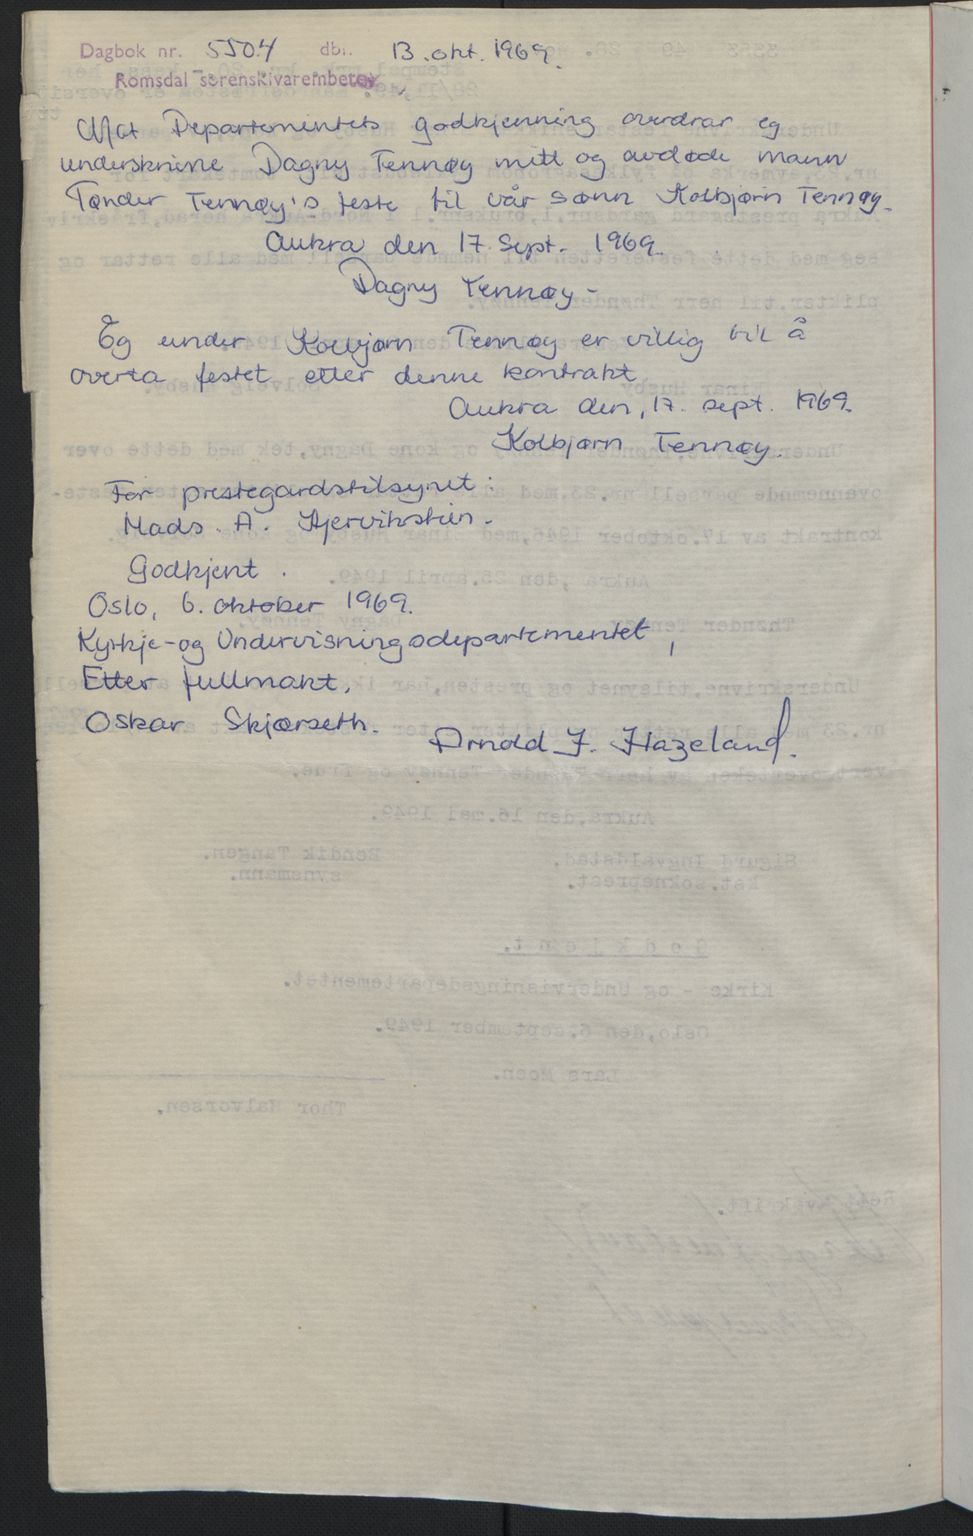 Dagbok nr. 5504 dbf. 13. okt. 1969.
Romsdal sorenskrivarembete
Mot Departementets godkjenning overdrar eg
underskrivne Dagny Tennøy mitt og avdøde mann
Tønder Tennøy's feste til vår sønn Kolbjørn Tennøy.
Aukra den 17. Sept. 1969.
Dagny Tennøy -
Eg under Kolbjørn Tennøy er villig til å
overta festet etter denne kontrakt
Aukra den, 17. sept. 1969.
Kolbjørn Tennøy.
For prestegardstilsynet:
Mads. A. Hjervikstein.
Godkjent.
Oslo, 6. oktober 1969.
Kyrkje- og Undervisningsdepartementet,
Etter fullmakt.
Oskar Skjærseth.
Arnold J. Hazeland.